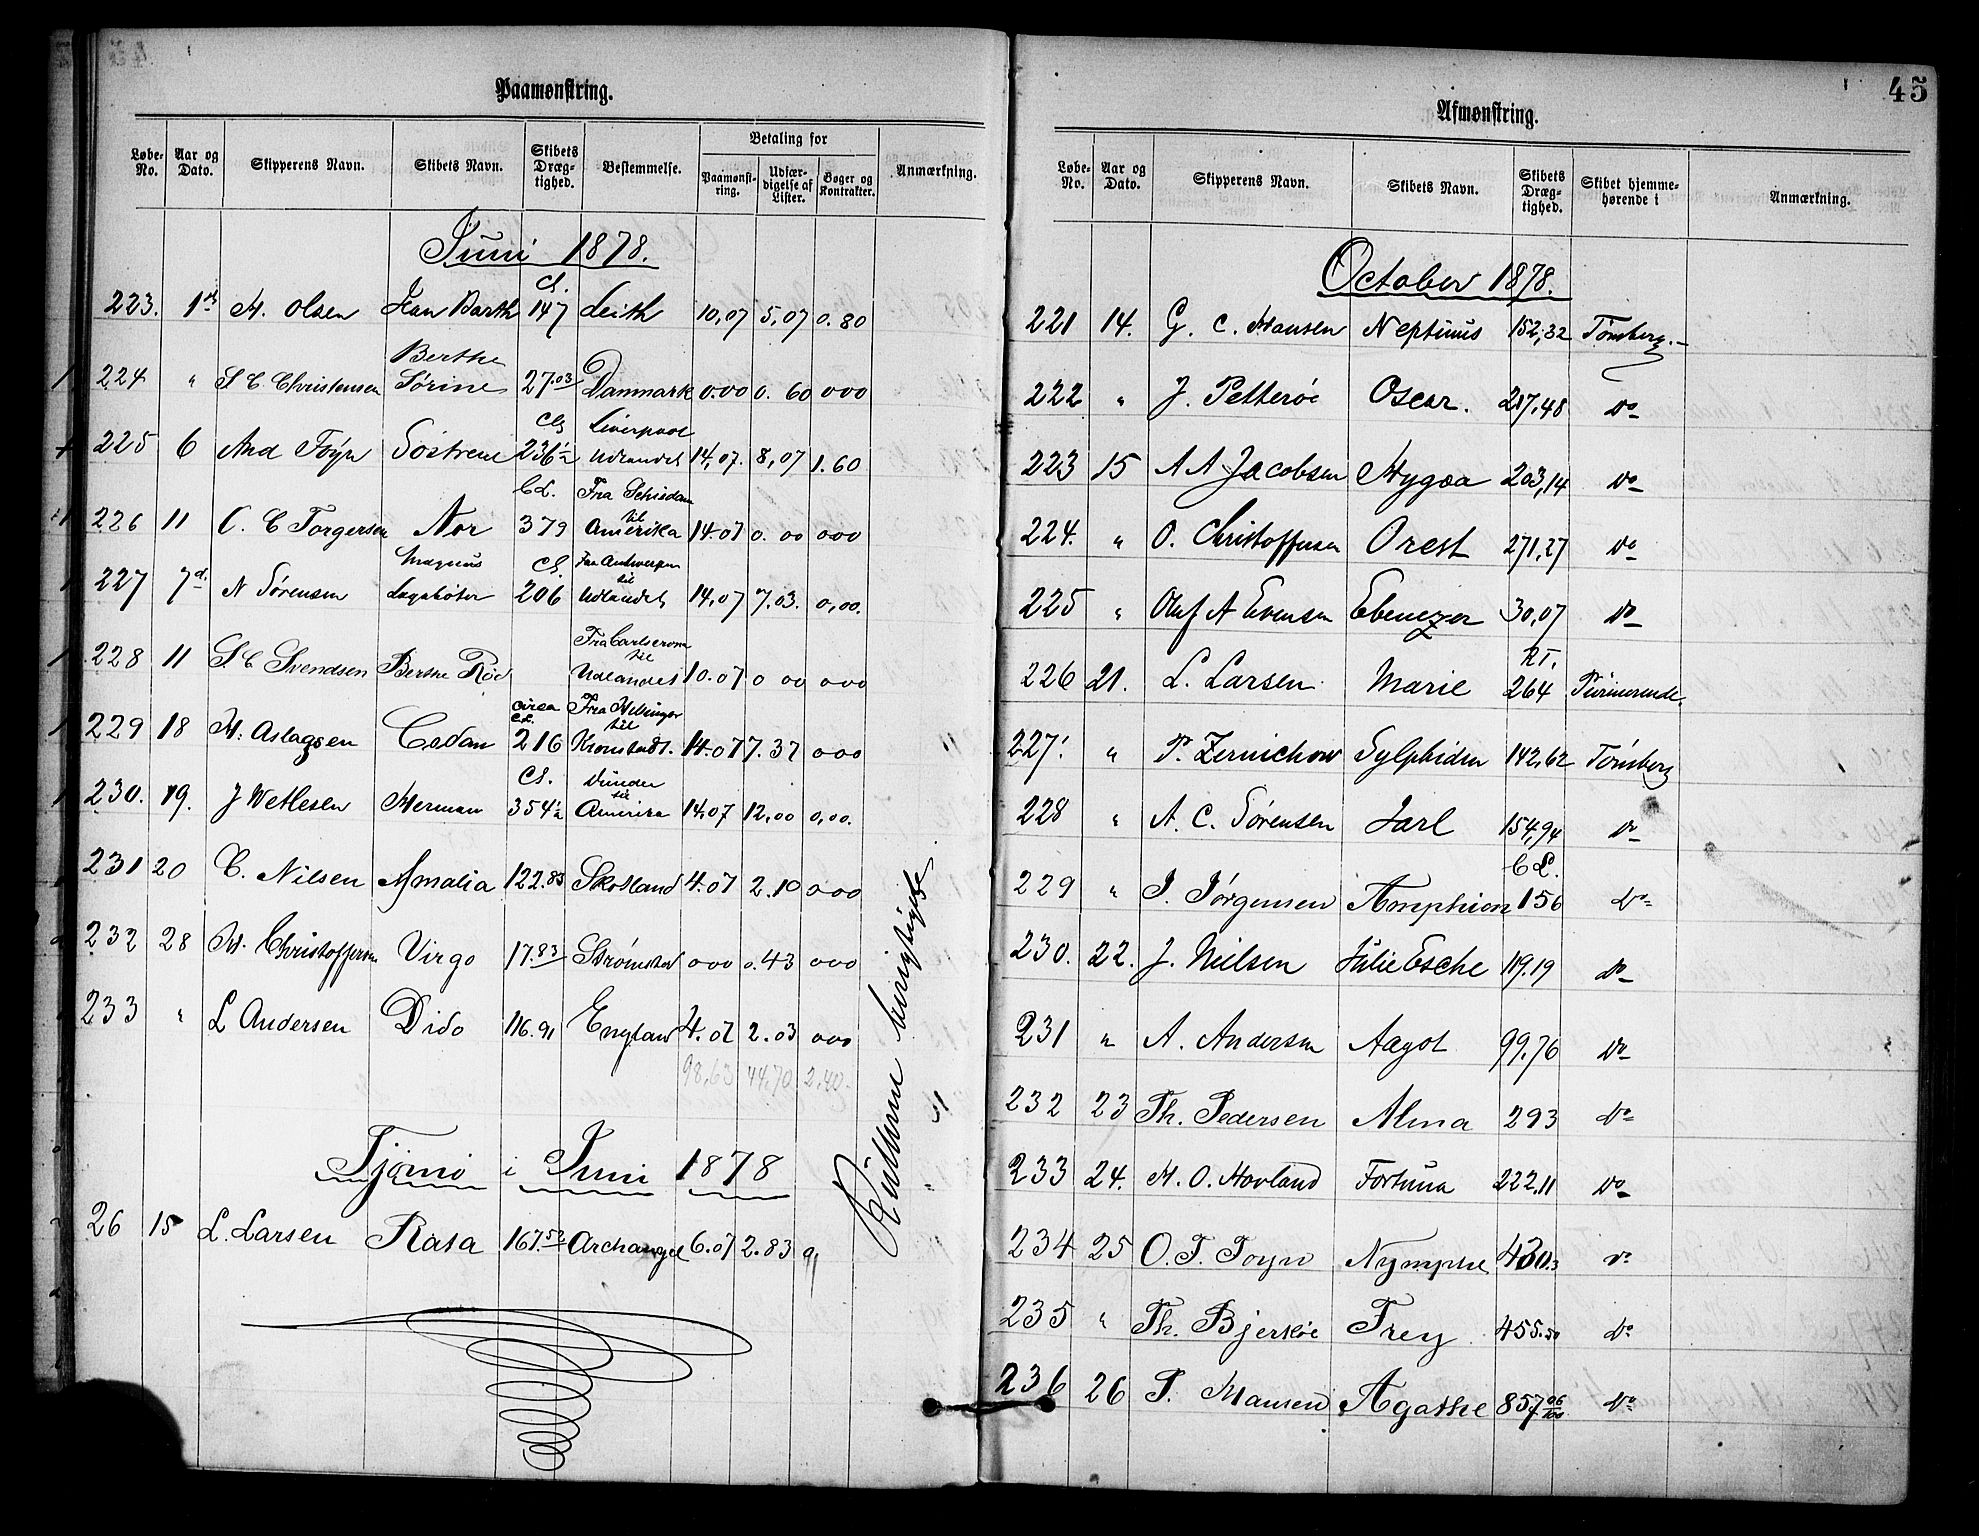 Paamønstring.
Løbe-No. Aar og Dato. Skipperens Navn. Skibets Navn. Skibets Dræg-tighed. Bestemmelse. Betaling for Paamønst-ring. Udfær-digelse af Lister. Bøger og Kontrakter. Anmærkning.
Juni 1878.
223. 1ste H. Olsen Jean Barth Cl. 147 Leith 10,07 5,07 0.80
224 " S C Christensen Berthe Sørine 27.03 Danmark 0.00 0. 60 000
225 6 And Føyn Søstrene Cl 236½ Liverpool Udlandet 14,07. 8,07 1.60
226 11 C. C Torgersen Nor CL. 379 Fra Schiedam til Amerika 14.07 0. 00 000
227 7d. N Sørensen Magnus Lagabøter Cl. 206 Fra Antwerpen til Udlandet 14,07 7.03. 0,00.
228 11 S C Svendsen Berthe Rød Fra Carlscrona til Udlandet 10.07 0 00 000
229 18 H. Aslagsen Cedan circa CL. 216 Fra Helsingør til Kronstadt. 14.07 7.37 000
230. 19. J Wetlesen Herman Cl. 354½ til Amerika 14,07 12,00 0,00.
231 20 C. Nilsen Amalia 122.83 Skotland 4.07 2.10 000
232 28 H. Christoffersen Virgo 17.83 Strømstad 000 0.43 000
233 " L Andersen Dido 116.91 England 4.07 2.03 000
98,63 44,70 2.40.
Tjømø i Juni 1878
26 15 L. Larsen Rasa 167.52 Archangel 6.07 2.83
45
Afmønstring.
Løbe-No. Aar og Dato. Skipperens Navn. Skibets Navn. Skibets Dræg-tighed. Skibet hjemme-hørende i Anmærkning.
October 1878.
221 14. G. C. Hansen Neptunus 152,32 Tønsberg.
222 " J. Petterøe Oscar. 217,48 Do
223 15 A A Jacobsen Hygæa 203,14 Do
224. " O. Christoffersen Orest 271,27 Do
225 " Oluf A Evensen Ebenezer 30,07 Do
226 21. L. Larsen Marie RT. 264
227. " P. Zernichow Sylphiden 142,62 Tønsberg
228 " A. C. Sørensen Jarl 154,94 Do
229 " J. Jørgensen Amphion CL. 156 Do
230. 22. J. Nielsen Julie Esche 119.19 Do
231 " A. Andersen Aagot 99,76 Do
232 23 Th. Pedersen Alma 293 Do
233 24. H. O. Hovland Fortuna 222,11 Do
234 25 O. F. Foyn Nymphe Do
235 " Th. Bjerkøe Frey 455.50 Do
236 26 P. Hansen Agathe 857 06/100 Do